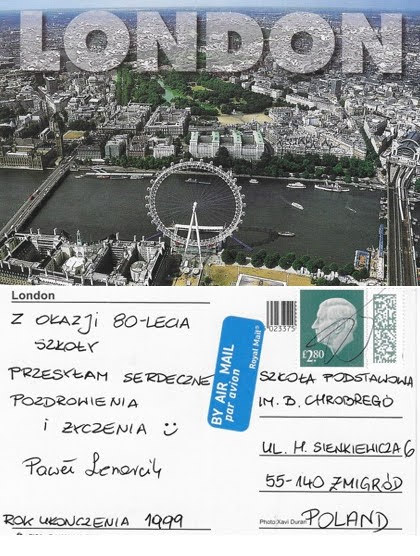 LONDON
London
Z OKAZJI 80-LECIA
SZKOŁY
PRZESYŁAM SERDECZNE
POZDROWIENIA
I ŻYCZENIA
Paweł
ROK UKOŃCZENIA 1999
023375
£2.80
BY AIR MAIL
par avion
Royal Mail®
SZKOŁA PODSTAWOWA
IM. B. CHROBREGO
UL. H. SIENKIEWICZA 6
55-140 ŻMIGRÓD
Photo: Xavi Duran
POLAND